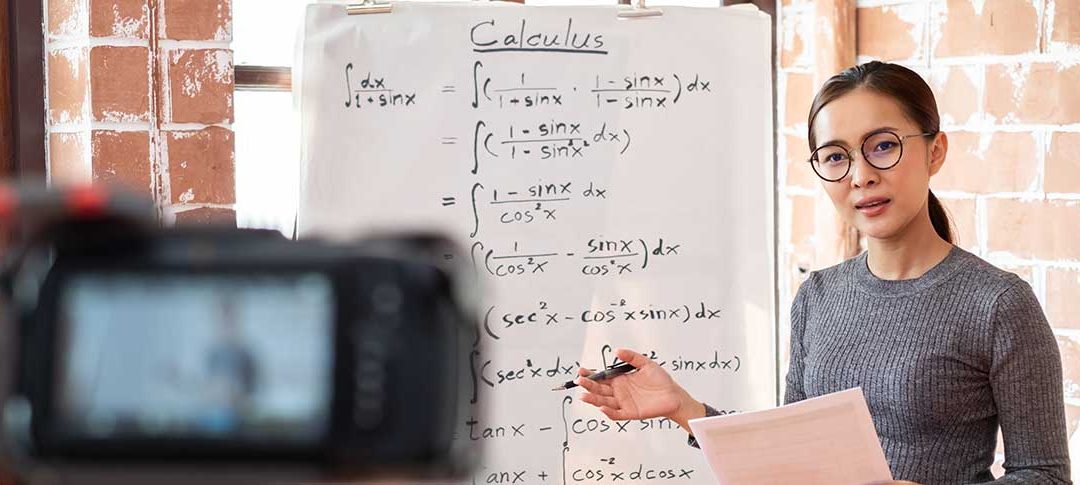 Calculus
∫ dx/(1+sinx) = ∫(1/(1+sinx) · (1-sinx)/(1-sinx)) dx
= ∫((1-sinx)/(1-sin²x²) dx)
= ∫ (1-sinx)/(cos²x) dx
= ∫(1/(cos²x) - sinx/(cos²x)) dx
∫(sec²x - cos⁻²x sinx) dx
∫(sec²x dx) - ∫ ⁻²x sinx dx)
= tanx - ∫cosx sin
anx + ∫cos⁻²x dcosx